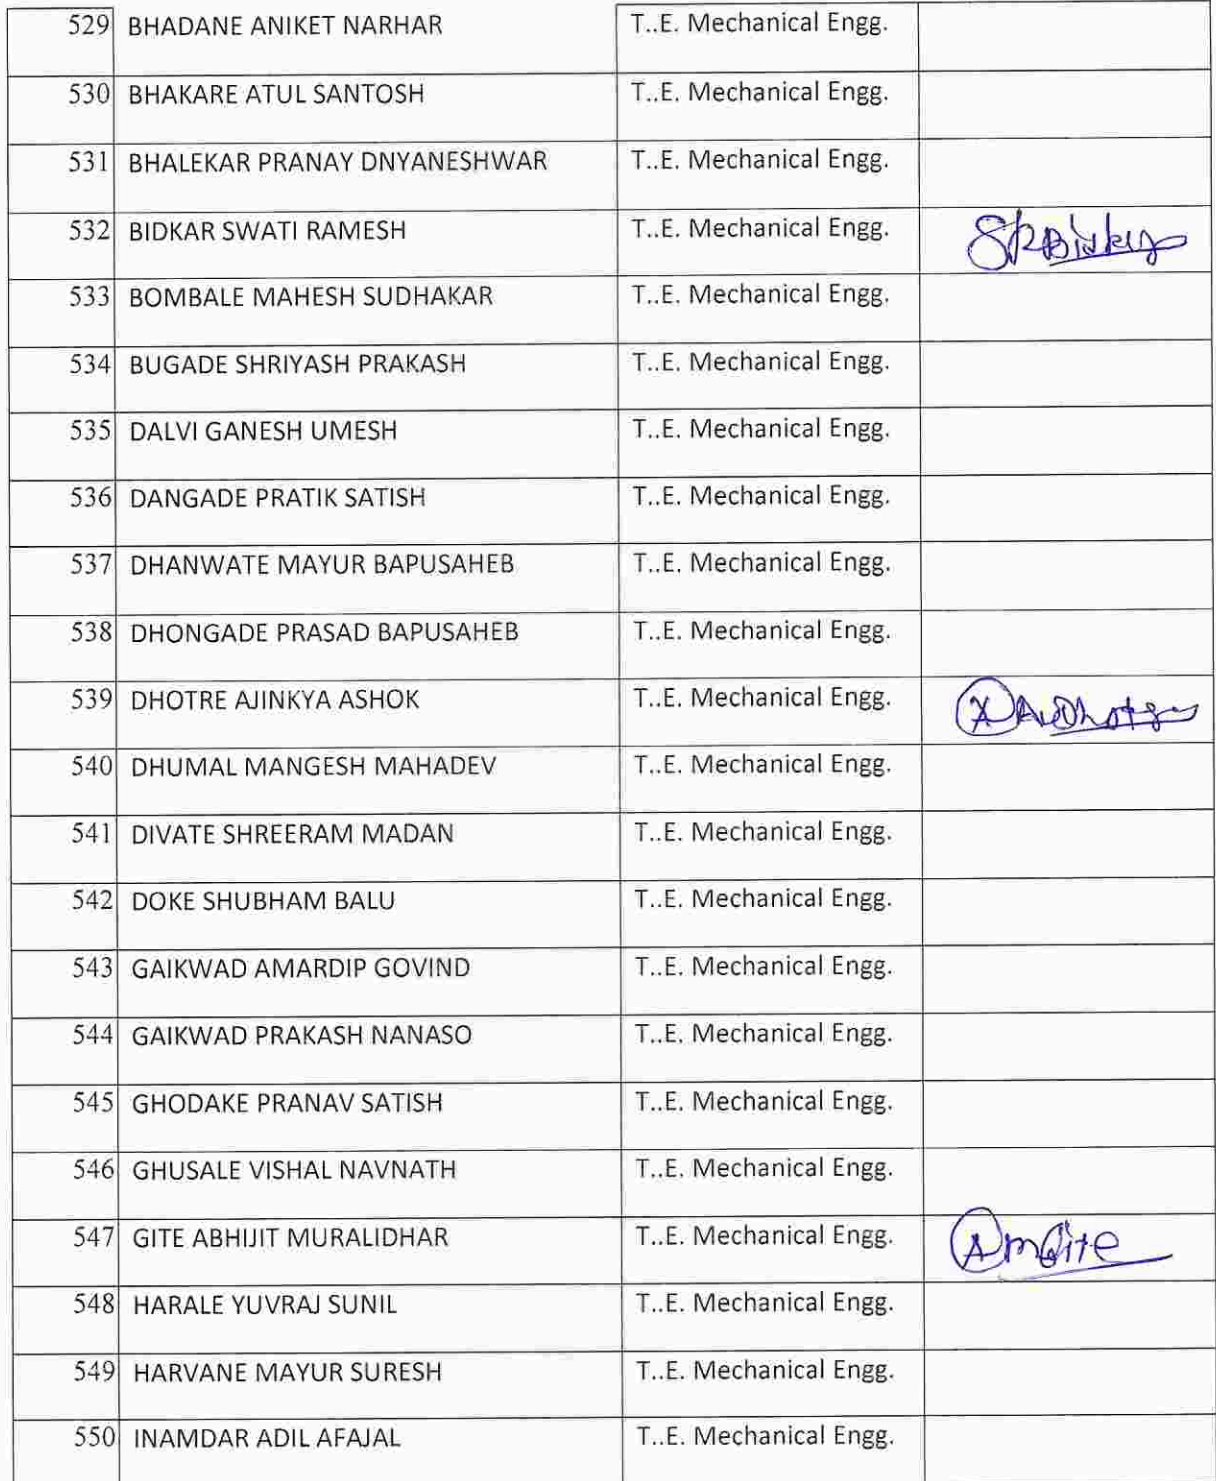 529 BHADANE ANIKET NARHAR T..E. Mechanical Engg.
530 BHAKARE ATUL SANTOSH T..E. Mechanical Engg.
531 BHALEKAR PRANAY DNYANESHWAR T..E. Mechanical Engg.
532 BIDKAR SWATI RAMESH T..E. Mechanical Engg.
533 BOMBALE MAHESH SUDHAKAR T..E. Mechanical Engg.
534 BUGADE SHRIYASH PRAKASH T..E. Mechanical Engg.
535 DALVI GANESH UMESH T..E. Mechanical Engg.
536 DANGADE PRATIK SATISH T..E. Mechanical Engg.
537 DHANWATE MAYUR BAPUSAHEB T..E. Mechanical Engg.
538 DHONGADE PRASAD BAPUSAHEB T..E. Mechanical Engg.
539 DHOTRE AJINKYA ASHOK T..E. Mechanical Engg.
540 DHUMAL MANGESH MAHADEV T..E. Mechanical Engg.
541 DIVATE SHREERAM MADAN T..E. Mechanical Engg.
542 DOKE SHUBHAM BALU T..E. Mechanical Engg.
543 GAIKWAD AMARDIP GOVIND T..E. Mechanical Engg.
544 GAIKWAD PRAKASH NANASO T..E. Mechanical Engg.
545 GHODAKE PRANAV SATISH T..E. Mechanical Engg.
546 GHUSALE VISHAL NAVNATH T..E. Mechanical Engg.
547 GITE ABHIJIT MURALIDHAR T..E. Mechanical Engg. AmGite
548 HARALE YUVRAJ SUNIL T..E. Mechanical Engg.
549 HARVANE MAYUR SURESH T..E. Mechanical Engg.
550 INAMDAR ADIL AFAJAL T..E. Mechanical Engg.